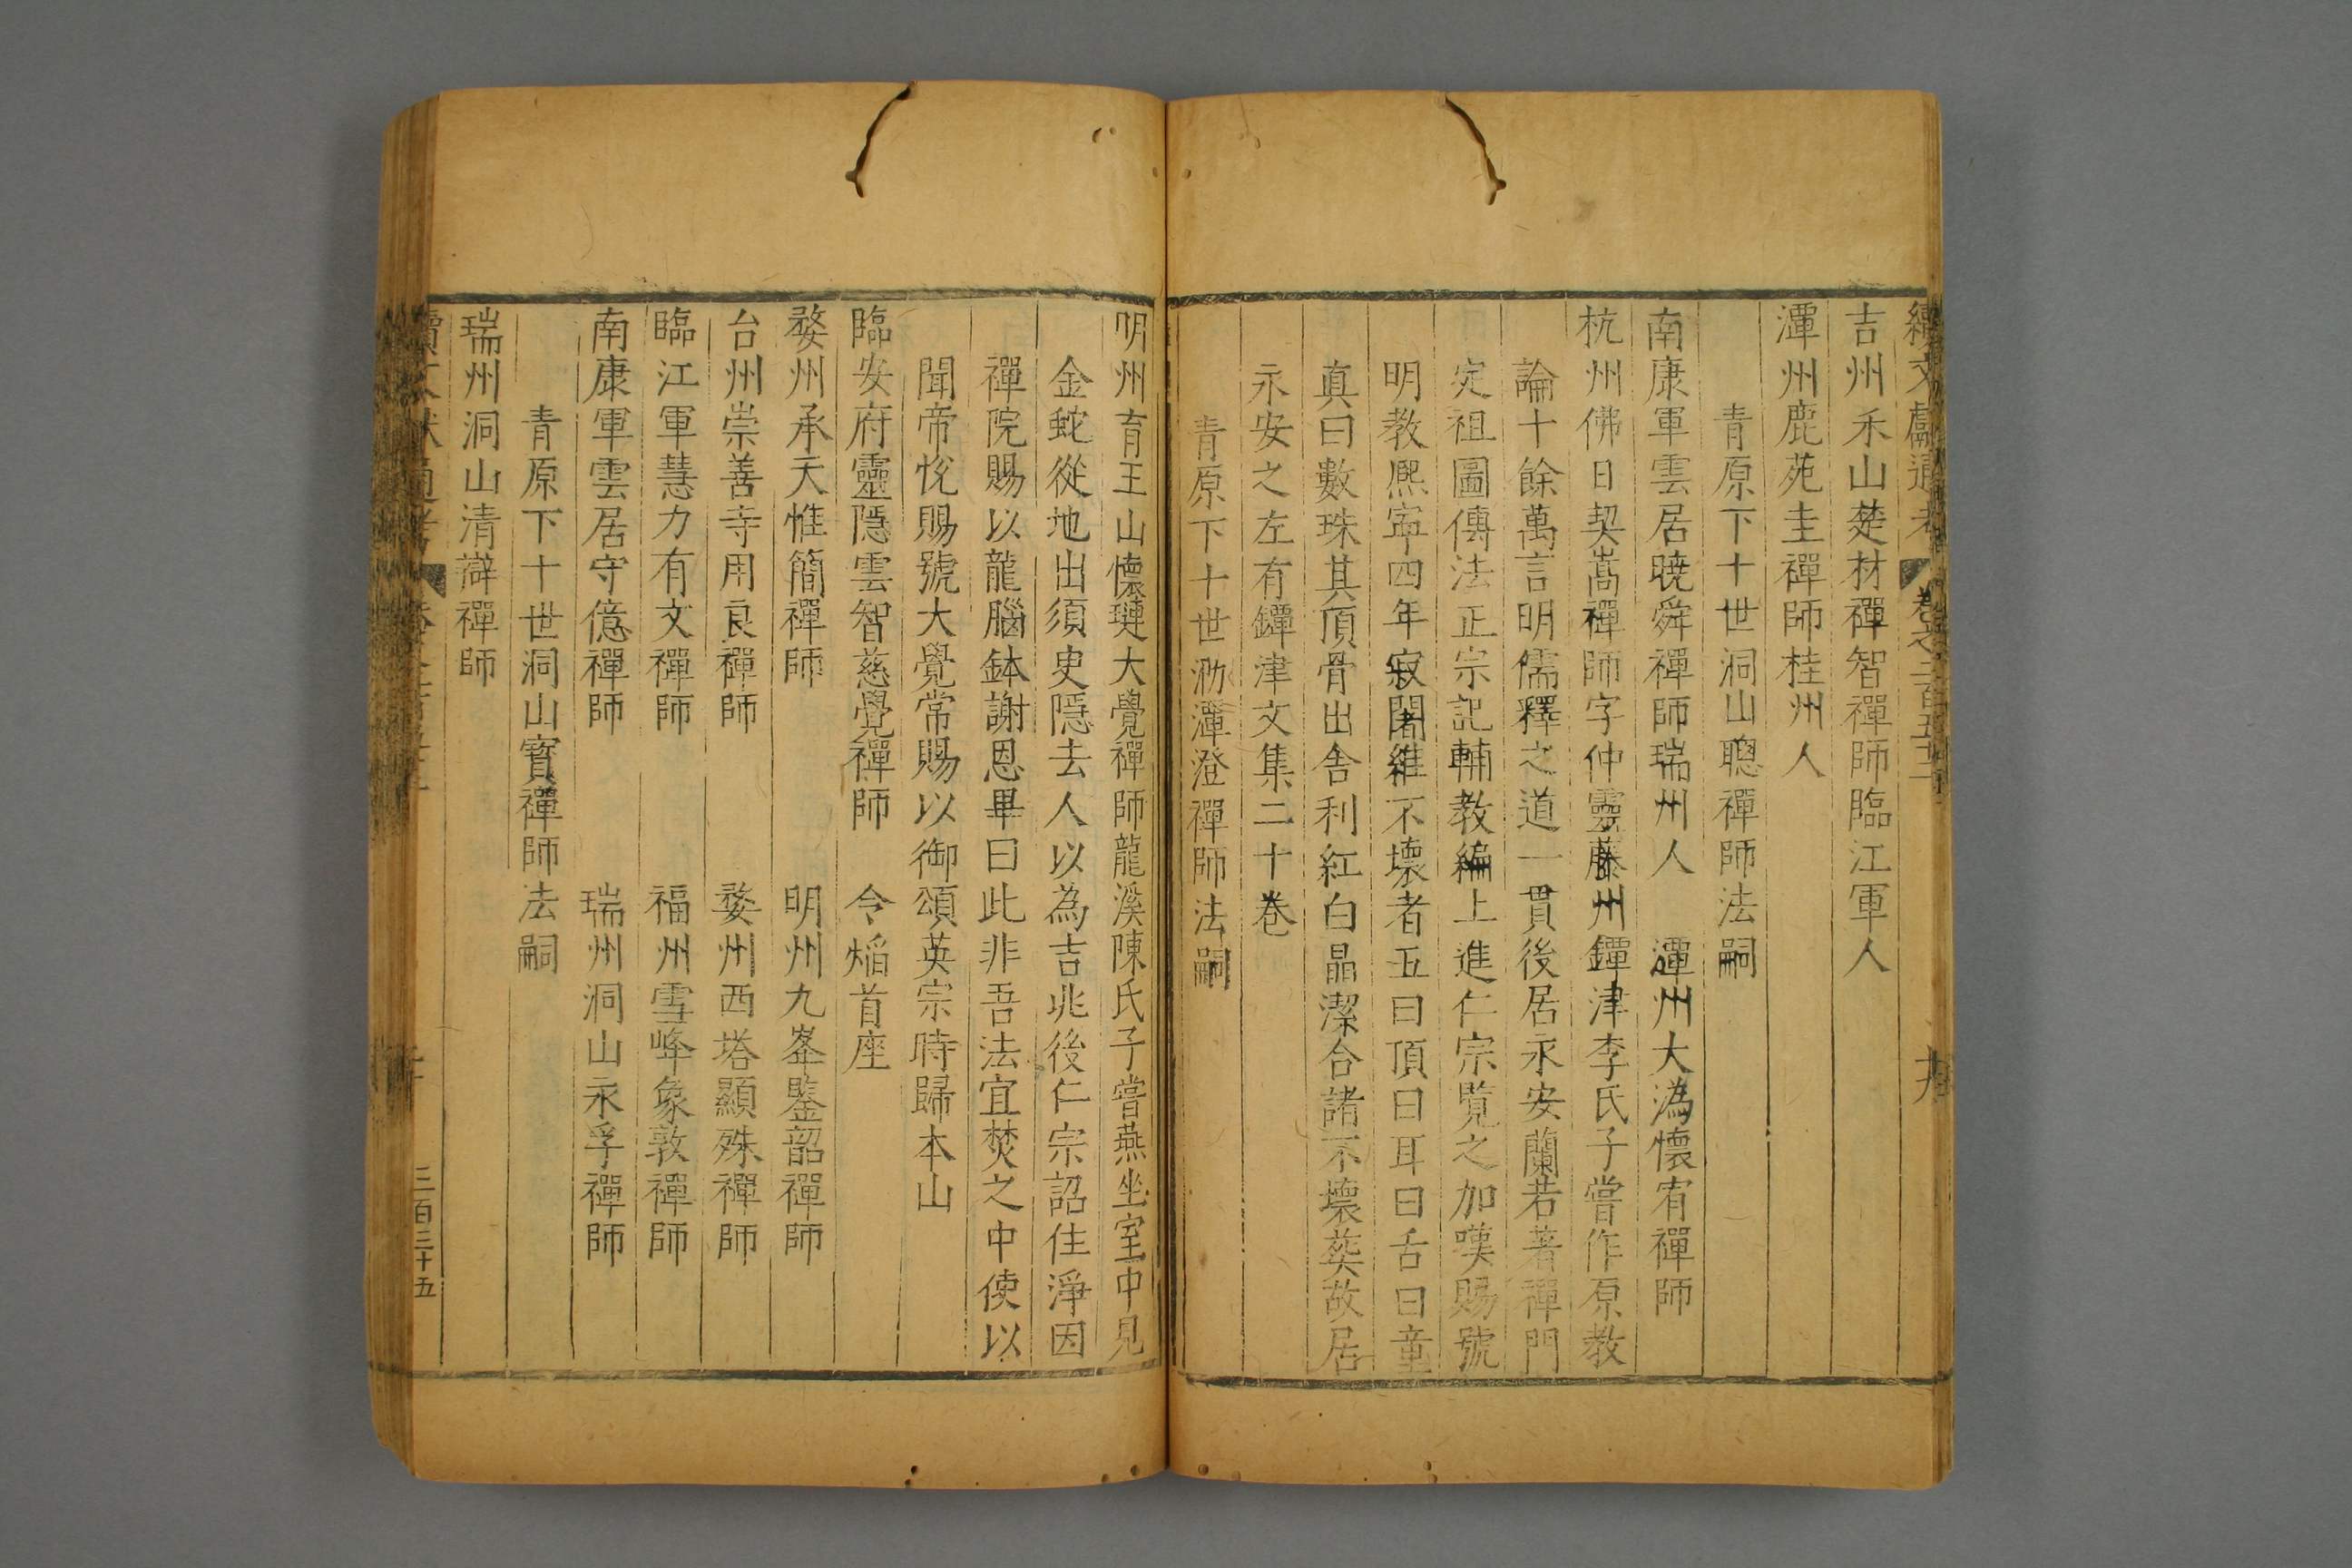 續文獻通考 卷之二百五十二 十九
吉州禾山楚材禪智禪師臨江軍人
潭州鹿苑圭禪師桂州人
青原下十世洞山聰禪師法嗣
南康軍雲居曉舜禪師瑞州人 潭州大溈懷宥禪師
杭州佛日契嵩禪師字仲靈藤州鐔津李氏子嘗作原教
論十餘萬言明儒釋之道一貫後居永安蘭若著禪門
定祖圖傳法正宗記輔教編上進仁宗覽之加嘆賜號
明教熙寧四年寂闍維不壞者五曰頂曰耳曰舌曰童
真曰數珠其頂骨出舍利紅白晶潔合諸不壞葬故居
永安之左有鐔津文集二十卷
青原下十世泐潭澄禪師法嗣
明州育王山懷璉大覺禪師龍溪陳氏子嘗燕坐室中見
金蛇從地出須臾隱去人以為吉兆後仁宗詔住淨因
禪院賜以龍腦鉢謝恩畢曰此非吾法宜焚之中使以
聞帝悅賜號大覺常賜以御頌英宗時歸本山
臨安府靈隱雲智慈覺禪師 令熖首座
婺州承天惟簡禪師 明州九峯鑒韶禪師
台州崇善寺用良禪師 婺州西塔顯殊禪師
臨江軍慧力有文禪師 福州雪峰象敦禪師
南康軍雲居守億禪師 瑞州洞山永孚禪師
青原下十世洞山寶禪師法嗣
瑞州洞山清辯禪師
三百三十五